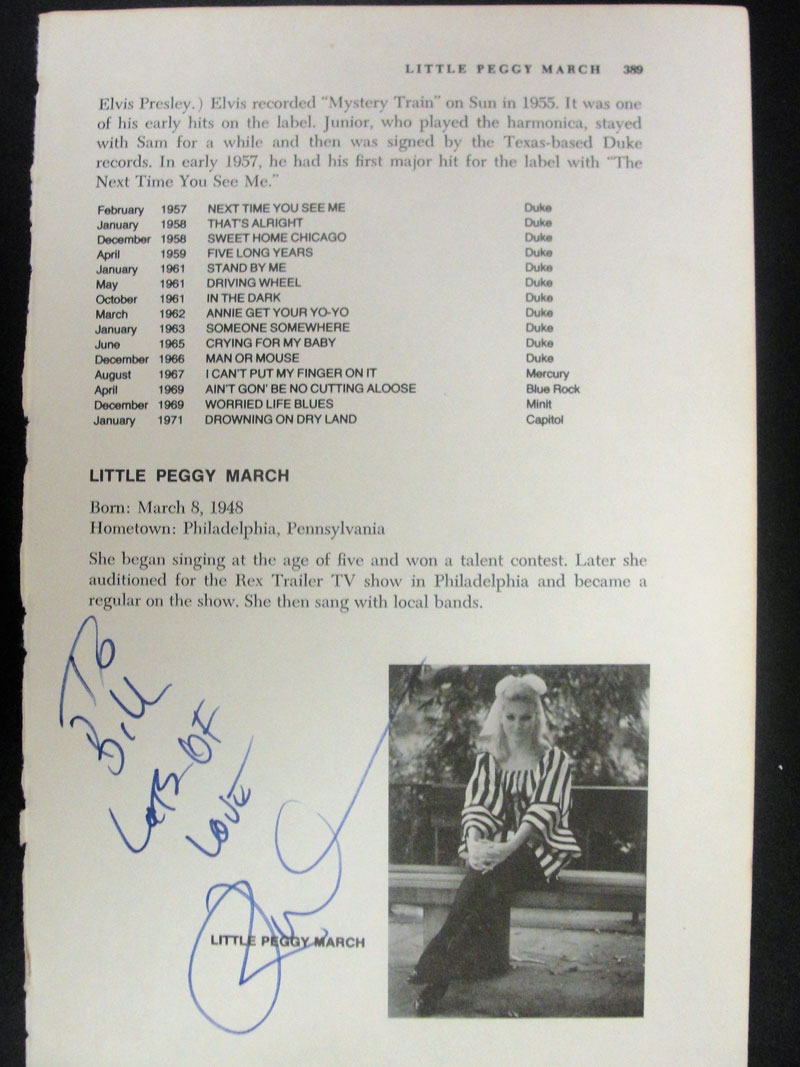 LITTLE PEGGY MARCH 389
Elvis Presley.) Elvis recorded "Mystery Train" on Sun in 1955. It was one
of his early hits on the label. Junior, who played the harmonica, stayed
with Sam for a while and then was signed by the Texas-based Duke
records. In early 1957, he had his first major hit for the label with "The
Next Time You See Me."
February 1957 NEXT TIME YOU SEE ME Duke
January 1958 THAT'S ALRIGHT Duke
December 1958 SWEET HOME CHICAGO Duke
April 1959 FIVE LONG YEARS Duke
January 1961 STAND BY ME Duke
May 1961 DRIVING WHEEL Duke
October 1961 IN THE DARK Duke
March 1962 ANNIE GET YOUR YO-YO Duke
January 1963 SOMEONE SOMEWHERE Duke
June 1965 CRYING FOR MY BABY Duke
December 1966 MAN OR MOUSE Duke
August 1967 I CAN'T PUT MY FINGER ON IT Mercury
April 1969 AIN'T GON' BE NO CUTTING ALOOSE Blue Rock
December 1969 WORRIED LIFE BLUES Minit
January 1971 DROWNING ON DRY LAND Capitol
LITTLE PEGGY MARCH
Born: March 8, 1948
Hometown: Philadelphia, Pennsylvania
She began singing at the age of five and won a talent contest. Later she
auditioned for the Rex Trailer TV show in Philadelphia and became a
regular on the show. She then sang with local bands.
To
Bill
Lots OF
LOVE
LITTLE PEGGY MARCH